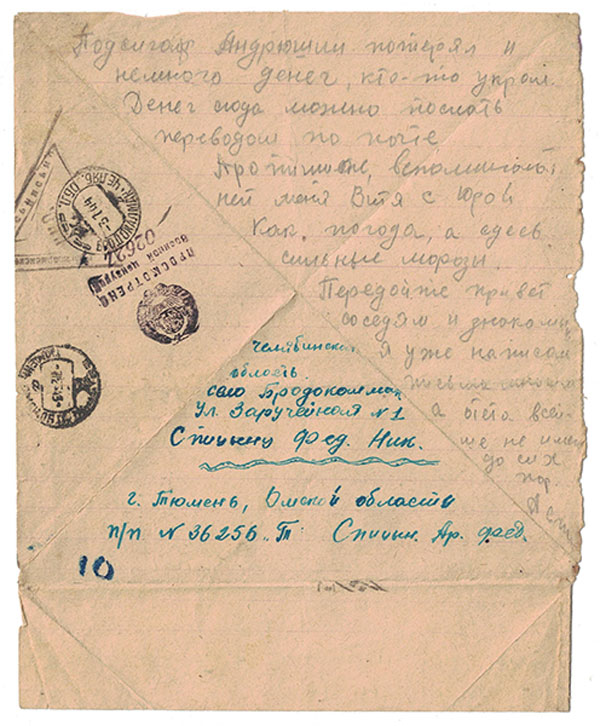 Андрюшин потерял и
немного денег, кто-то украл.
Денег сюда можно послать
переводом по почте
вспоминают
ней меня Витя с Юрой
Как, погода, а здесь
сильные морозы.
Передайте привет
соседям и знакомым
я уже написал
письма
а ответа всё
ще не имею
до сих
пор.
ПРОСМОТРЕНО
Военной Цензурой
02622
Челябинская
область
село Бродокалмак
ул. Заручейная N 1
Спицину Фед. Ник.
г. Тюмень, Омской области
п/п N 36256 "Т" Спицын. Ар. Фед.
10